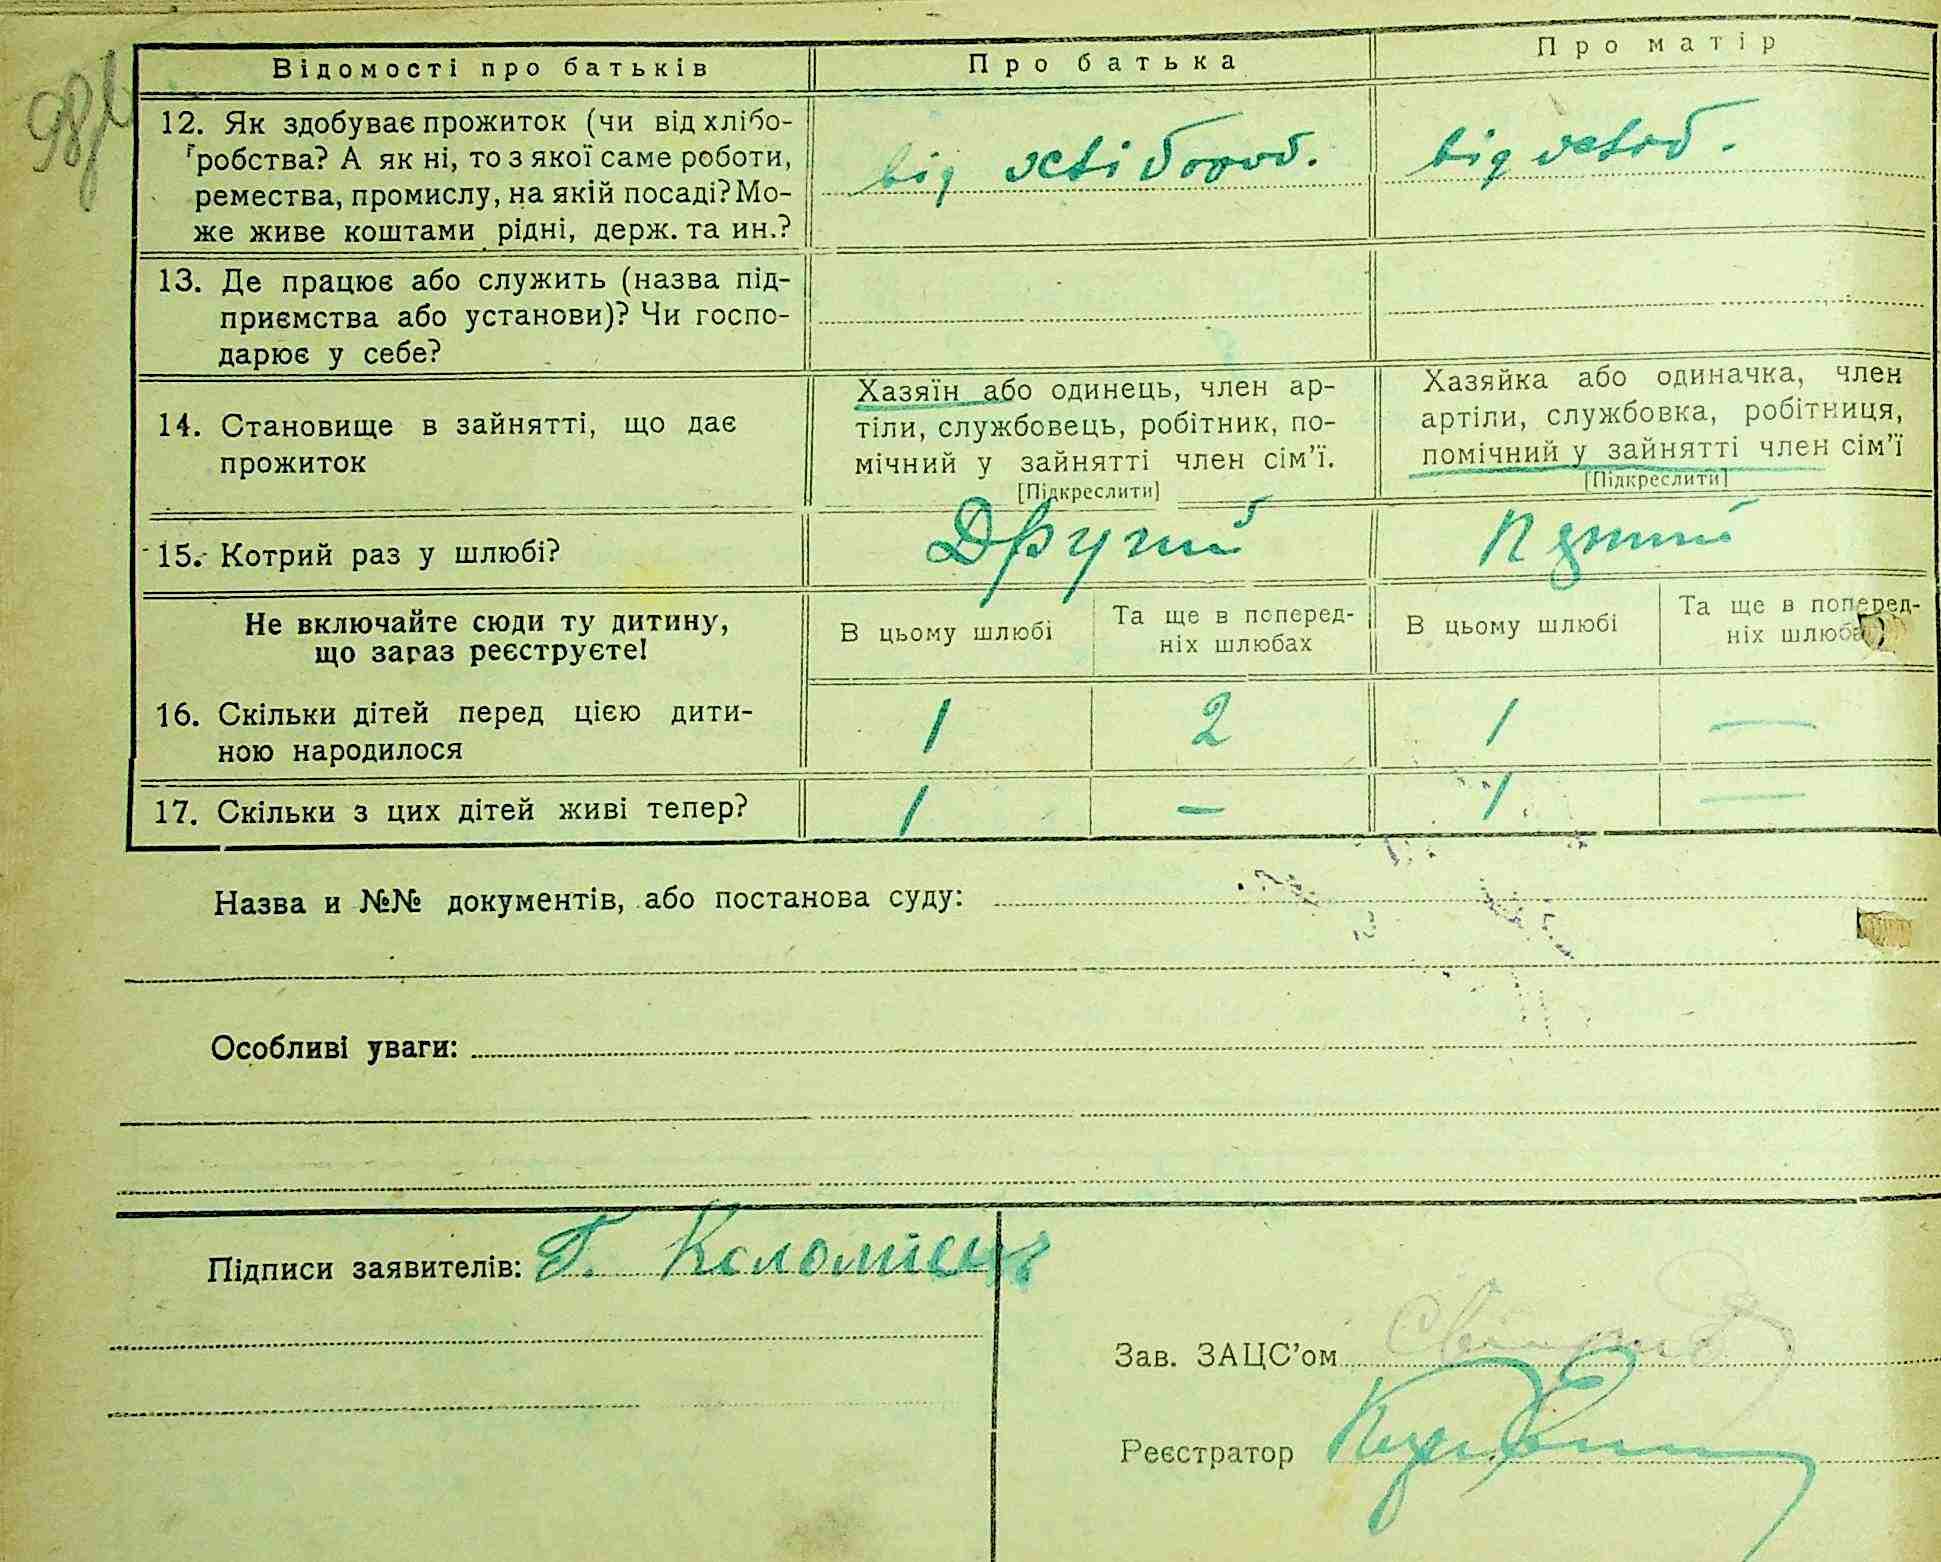 Відомості про батьків
Про батька
Про матір
12. Як здобуває прожиток (чи від хлібо-
робства? А як ні, то з якої саме роботи,
ремества, промислу, на якій посаді? Мо-
же живе коштами рідні, держ. та ин.?
від хлібороб.
від хлібороб.
13. Де працює або служить (назва під-
приємства або установи)? Чи госпо-
дарює у себе?
14. Становище в зайнятті, що дає
прожиток
Хазяїн або одинець, член ар-
тіли, службовець, робітник, по-
мічний у зайнятті член сім'ї.
[Підкреслити]
Хазяйка або одиначка, член
артіли, службовка, робітниця,
помічний у зайнятті член сім'ї
[Підкреслити]
15. Котрий раз у шлюбі?
Другий
Не включайте сюди ту дитину,
що зараз реєструєте!
В цьому шлюбі
Та ще в поперед-
ніх шлюбах
В цьому шлюбі
Та ще в поперед-
ніх шлюбах
16. Скільки дітей перед цією дити-
ною народилося
1
2
1
—
17. Скільки з цих дітей живі тепер?
1
—
1
—
Назва и №№ документів, або постанова суду:
Особливі уваги:
Підписи заявителів: Г. Коломієць
Зав. ЗАЦС'ом
Реєстратор